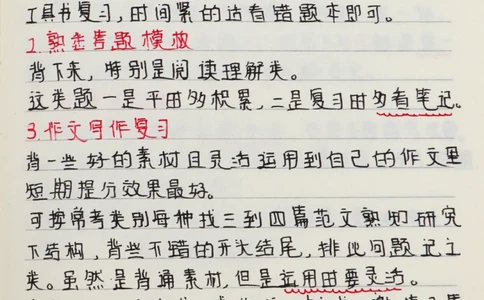 工具书复习,时间紧的话看错题本即可。
2.熟悉答题模板
背下来,特别是阅读理解类。
这类题一是平田多积累,二是复习田多看笔记。
3.作文写作复习
背一些好的素材且灵活运用到自己的作文里
短期提分效果最好。
可按常考类别每种找三到四篇范文熟知研究
下结构,背些不错的开头结尾,排比问题记工
类。虽然是背诵素材,但是运用田要灵活。